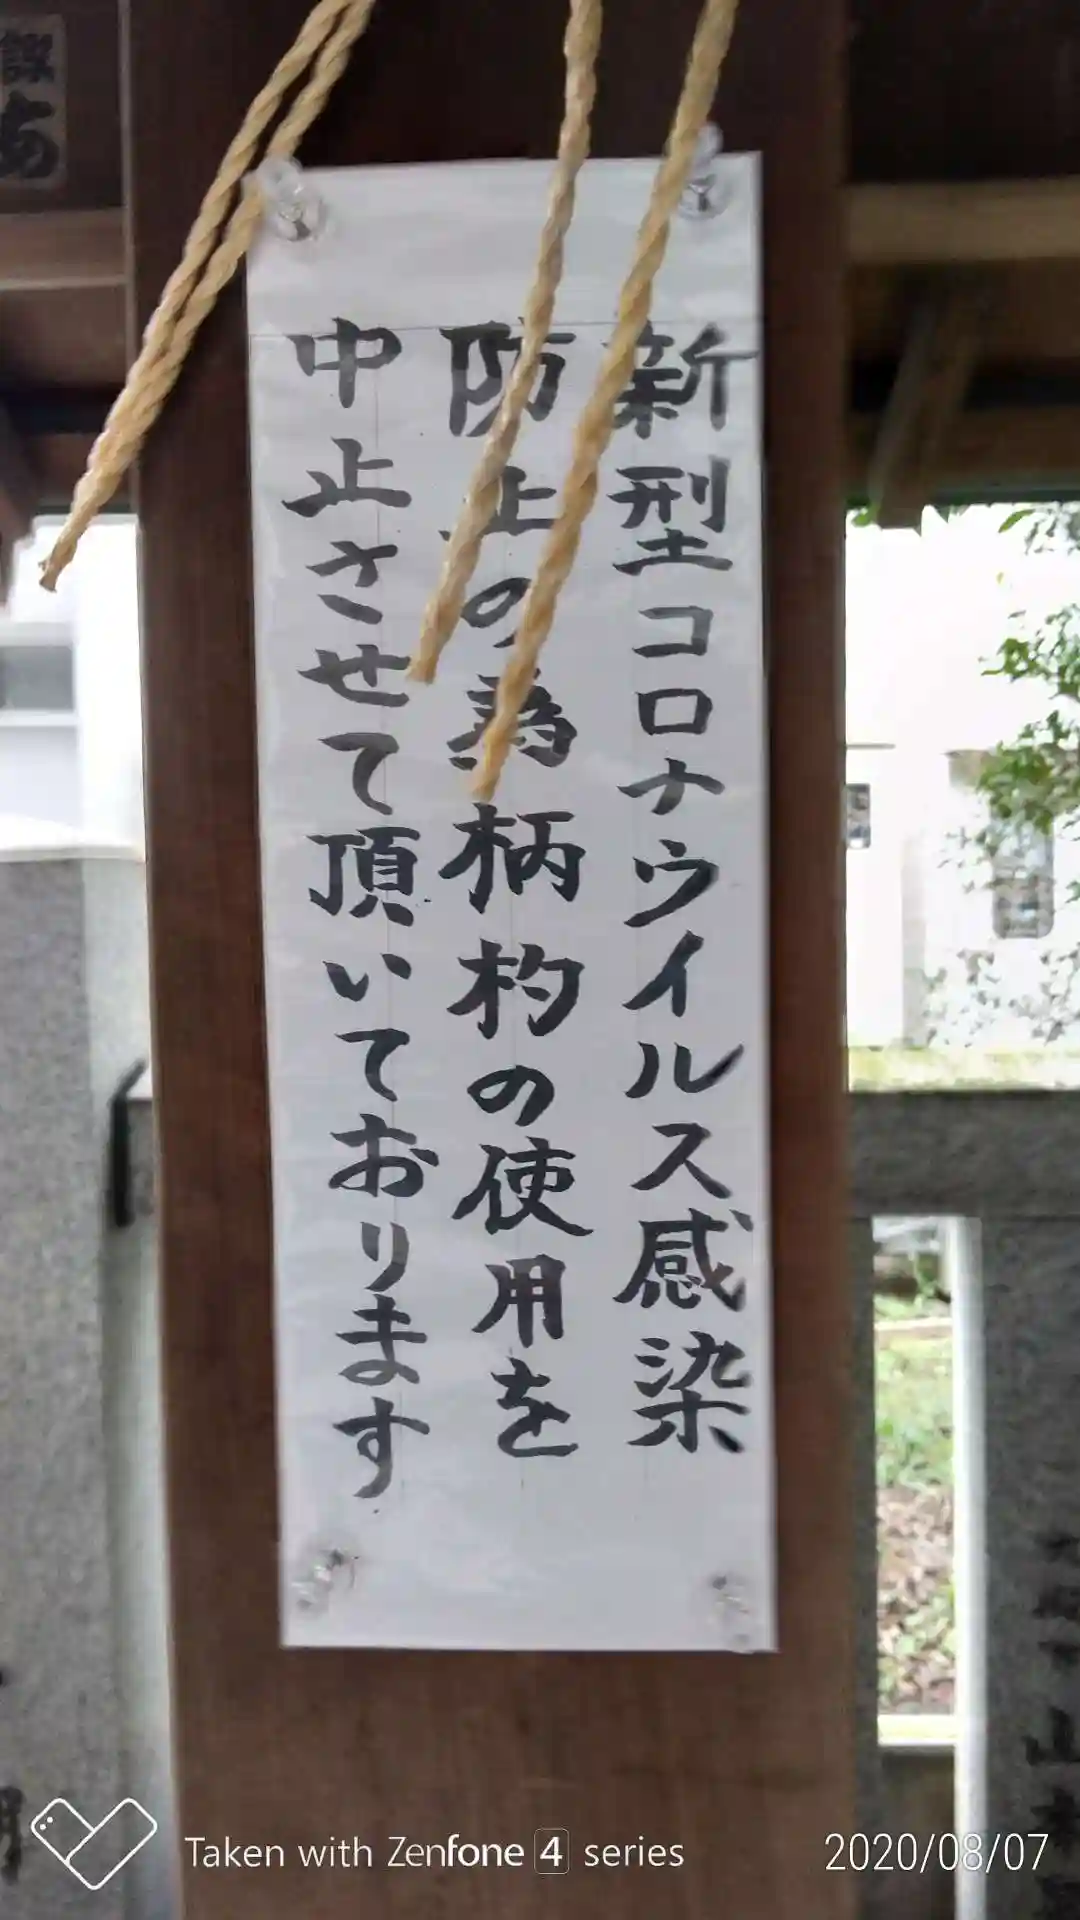 新型コロナウイルス感染
防止の為柄杓の使用を
中止させて頂いております
Taken with Zenfone 4 series
2020/08/07